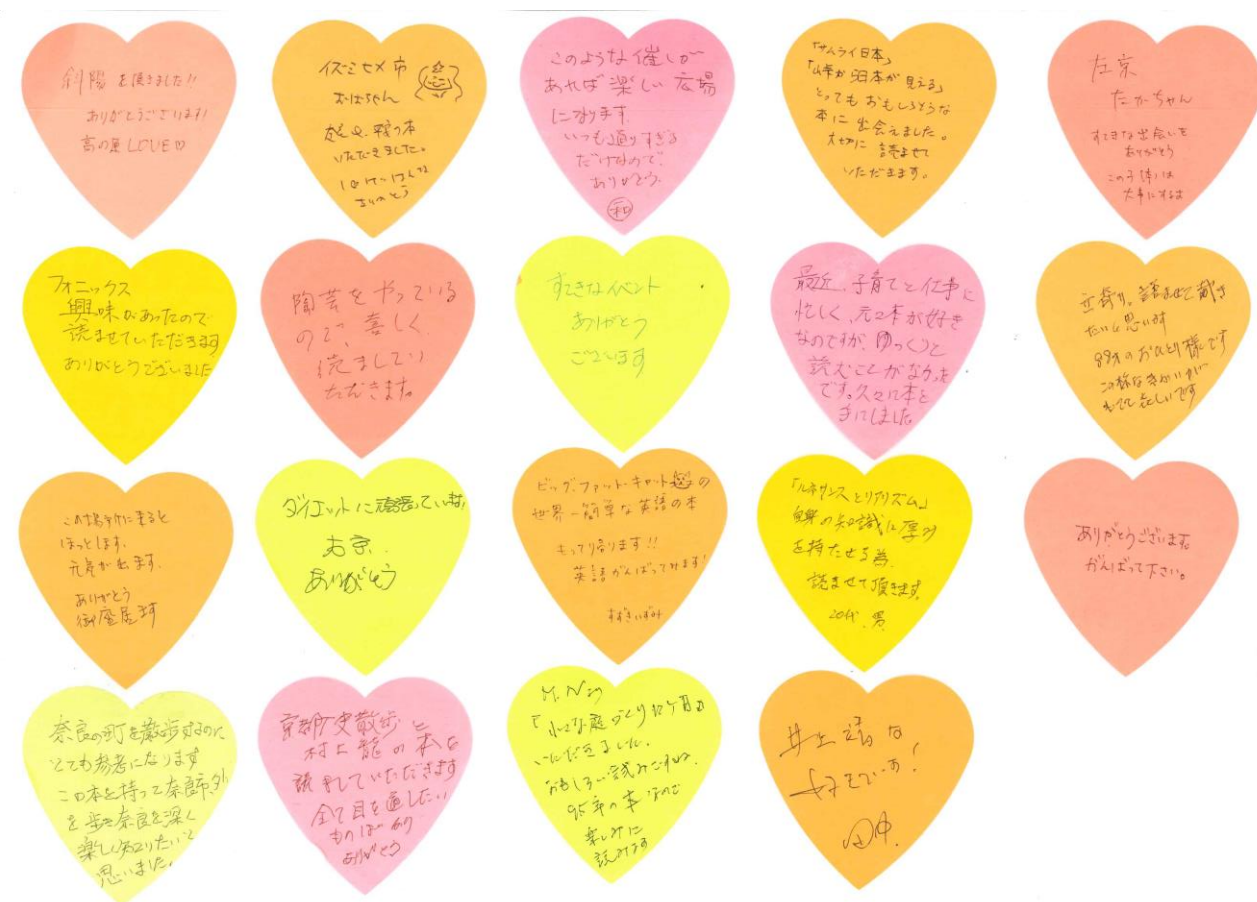 斜陽 を頂きました!!
ありがとうございます!
LOVE♡
イズミセメ市
おばちゃん
いただきました。
ありがとう
このような催しが
あれば楽しい広場
になります。
いつも通りすぎる
だけなので。
ありがとう。
和
「サムライ日本」
「山手から日本が見える」
とってもおもしろそうな
本に出会えました。
大切に読ませて
いただきます。
左京
たかちゃん
すてきな出会いを
ありがとう
この子(本)は
大事にするは
フォニックス
興味があったので
読ませていただきます
ありがとうございました
陶芸をやっている
ので、喜しく
読ましてい
ただきます。
すてきなイベント
ありがとう
ございます
最近、子育てと仕事に
忙しく、元々本が好き
なのですが、ゆっくりと
読むことがなかった
です。久々に本を
手にしました
立寄り、読ませて戴き
たいと思います
88才のおひとり様です
この様な
この場所に来ると
ほっとします。
元気が出ます。
ありがとう
御座居ます
ダイエットに頑張っています!
お京
ありがとう
ビッグ・ファット・キャットの
世界一簡単な英語の本
もって帰ります!!
英語がんばってみます!
すずきいずみ
「ルネサンスとリアリズム」
の知識に厚み
を持たせる為、
読ませて頂きます。
20代、男
ありがとうございます。
がんばって下さい。
奈良の町を散歩するのに
とても参考になります
この本を持って奈良市外
を歩き奈良を深く
楽しく知りたいと
思いました。
京都歴史散歩と
村上龍の本を
読ましていただきます
全て目を通したい
ものばかり
ありがとう
M.Nより
「小さな庭づくり12ヶ月」
いただきました。
おもしろい試みですね。
95年の本なので
楽しみに
読みます
井上靖な
好きです!
田中.